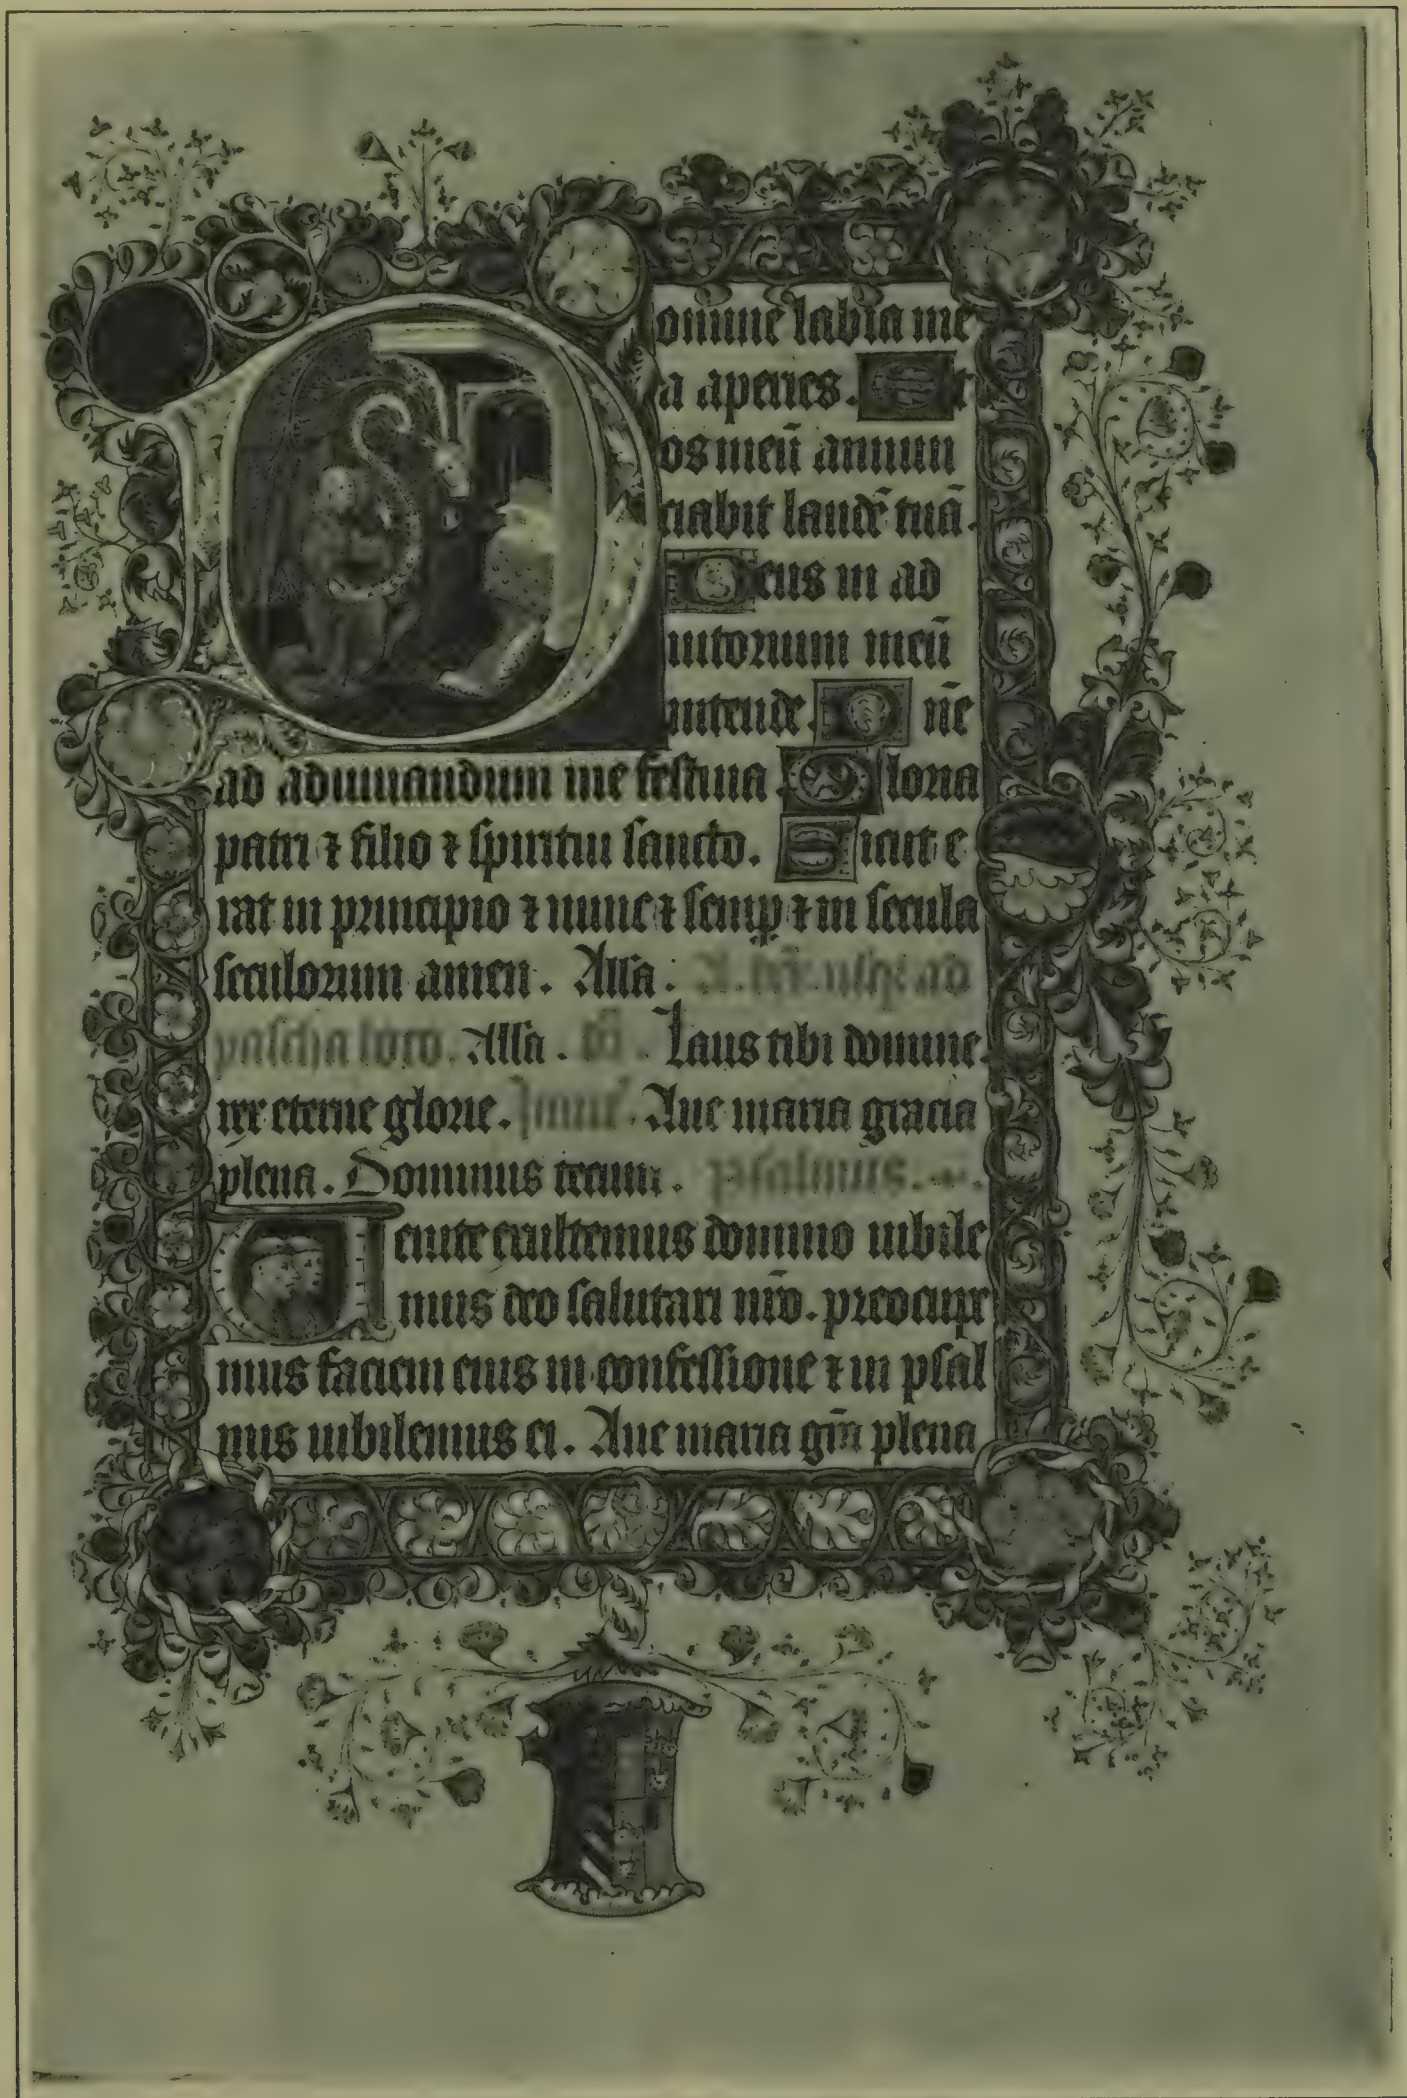 Domine labia me
a aperies. Et
os meū annun
ciabit laudē tuā.
Deus in ad
iutorium meū
intende. Dñe
ad adiuuandum me festina. Gloria
patri ⁊ filio ⁊ spiritui sancto. Sicut e
rat in principio ⁊ nunc ⁊ semꝑ ⁊ in secula
seculorum amen. Alla. ad
pascha loco. Alla. Laus tibi domine
rex eterne glorie. Inuit̄. Aue maria gracia
plena. Dominus tecum. psalmus.
Uenite exultemus domino iubile
mus deo salutari nr̄o. preocupe
mus faciem eius in confessione ⁊ in psal
mis iubilemus ei. Aue maria gr̄a plena